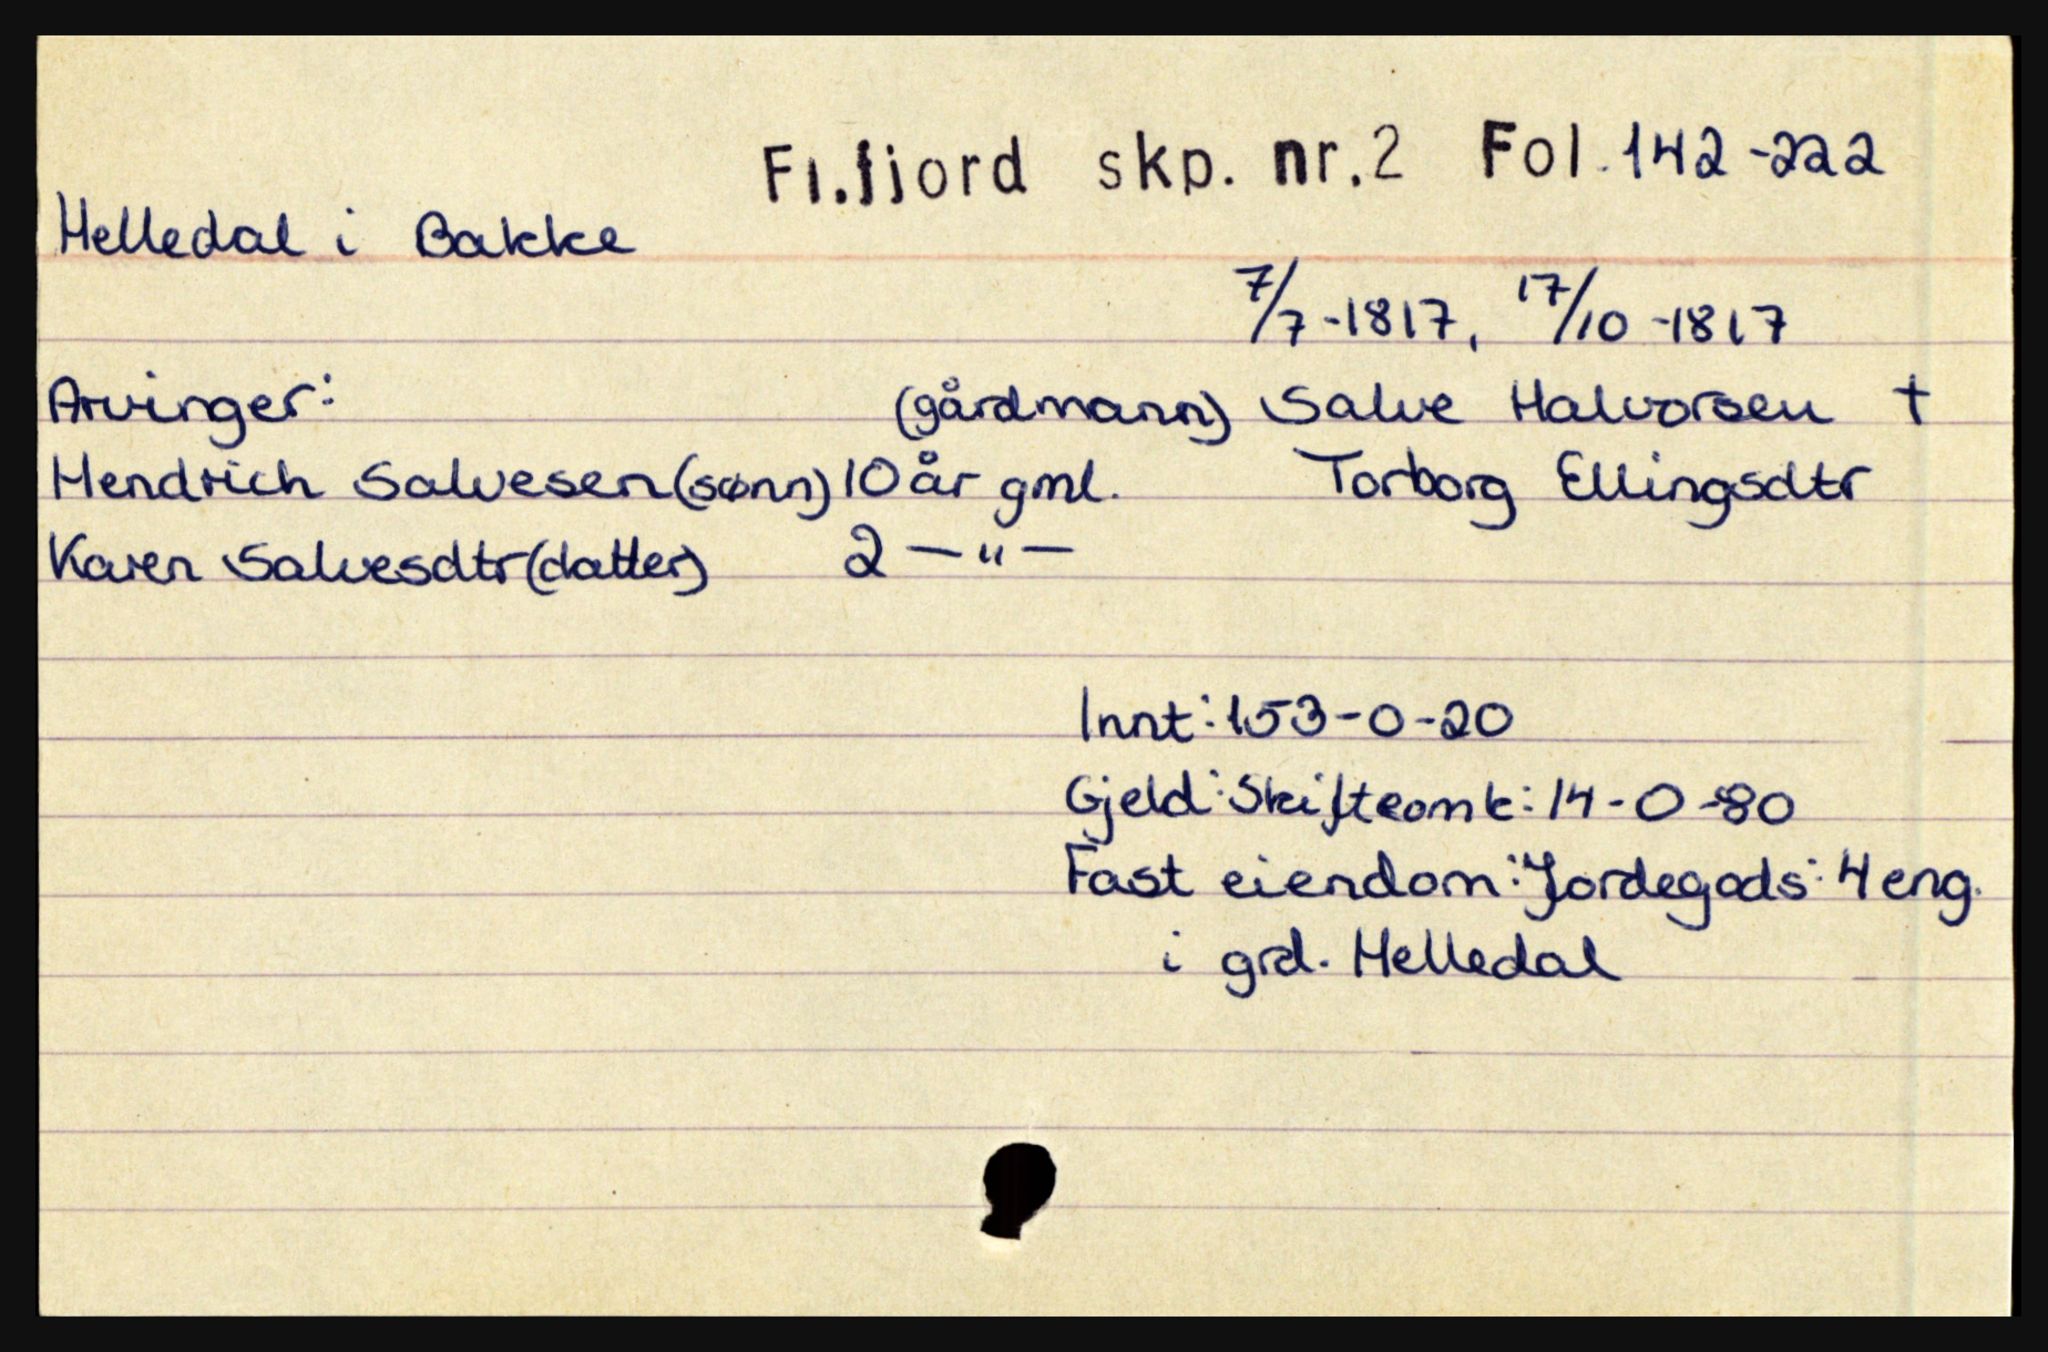 Fl.fjord skp. nr.2 Fol.142-222
Helledal i Bakke
7/7-1817, 17/10-1817
Arvinger: (gårdmann) Salve Halvorsen †
Hendrich Salvesen (sønn) 10 år gml. Torborg Ellingsdtr
Karen Salvesdtr (datter) 2 — " —
Innt: 153-0-20
Gjeld: Skifteomk: 14-0-80
Fast eiendom: Jordegods: 4 eng.
i grd. Helledal